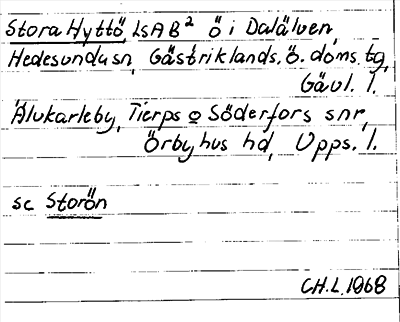 Stora Hyttö, LSAB² ö i Dalälven,
Hedesunda sn, Gästriklands. ö. doms. tg,
Gävl. l.
Älvkarleby, Tierps o Söderfors snr,
Örbyhus hd, Upps. l.
se Storön
CH.L.1968